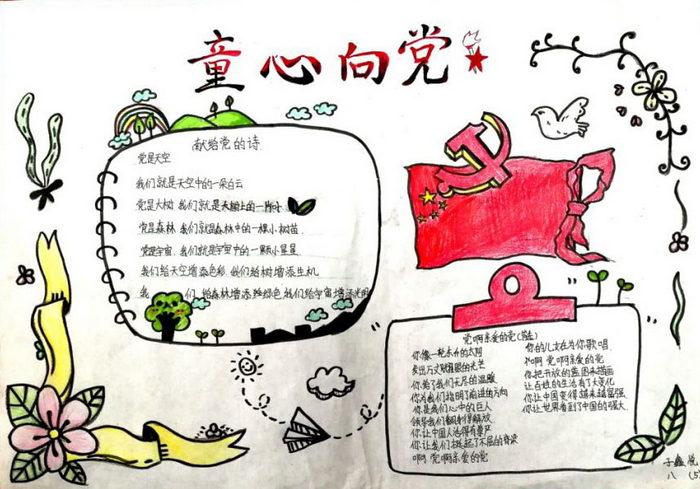 童心向党
献给党的诗
党是天空
我们就是天空中的一朵白云
党是大树 我们就是大树上的一片小
党是森林 我们就是森林中的一棵小树苗
党是宇宙 我们就是宇宙中的一颗小星星
我们给天空增添色彩 我们给树增添生机
我 们 给森林增添绿色 我们给宇宙增添光明
党啊亲爱的党
你像一轮东升的太阳
发出万丈耀眼的光芒
你给了我们无尽的温暖
你为我们指明了前进的方向
你是我们心中的巨人
领导我们翻身得解放
你让中国人活得有尊严
你让我们挺起了不屈的脊梁
啊 党啊亲爱的党
你的儿女在为你歌唱
啊 党啊亲爱的党
你把开放的蓝图来描画
让百姓的生活有了大变化
你让中国变得越来越富强
你让世界看到了中国的强大
子鑫悦
八 (5